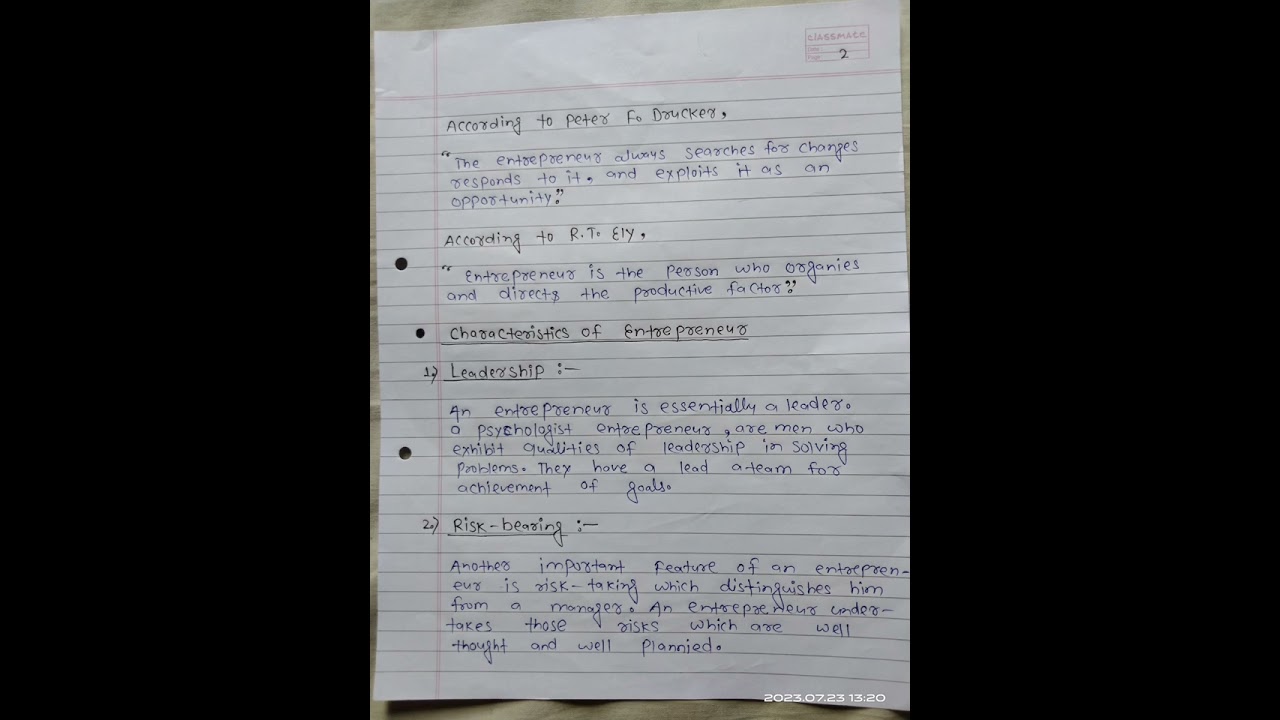 classmate
Date
Page 2
According to Peter Fo Drucker,
"The entrepreneur always searches for changes
responds to it, and exploits it as an
opportunity."
According to R.To Ely,
"Entrepreneur is the person who organies
and directs the productive factor"
Characteristics of Entrepreneur
1.) Leadership :-
An entrepreneur is essentially a leader.
a psychologist entrepreneur, are men who
exhibit qualities of leadership in solving
problems. They have a lead a team for
achievement of goals.
2.) Risk-bearing :-
Another important feature of an entrepren-
eur is risk-taking which distinguishes him
from a manager. An entrepreneur under-
takes those risks which are well
thought and well plannied.
2023.07.23 13:20